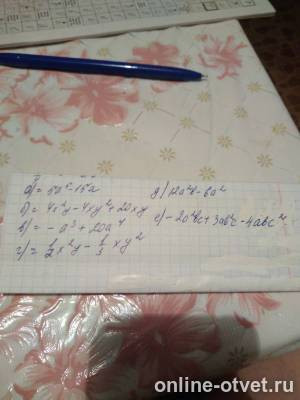 а) = 5a² - 15a
б) = 4x²y - 4xy² + 20xy
в) = - a³ + 20a⁴
г) = 1/2 x²y - 1/3 xy²
д) 12a²b - 6a²
е) - 2a²bc + 3ab²c - 4abc²
online-otvet.ru